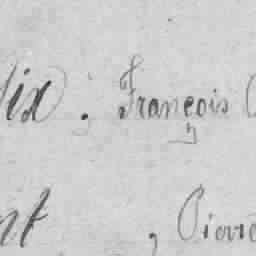 lix, François
nt, Pierre